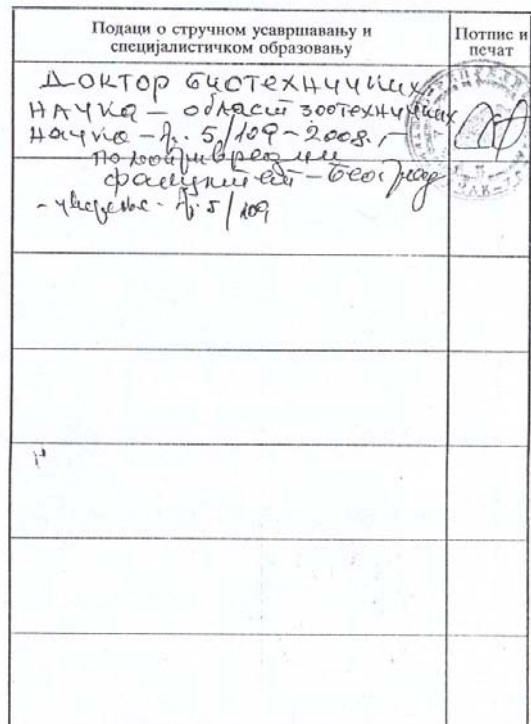 Подаци о стручном усавршавању и
специјалистичком образовању
Потпис и
печат
Доктор биотехничких
наука – област зоотехничких
наука – бр. 5/109 – 2008. –
пољопривредни
факултет – Београд
– уверење – бр. 5/109